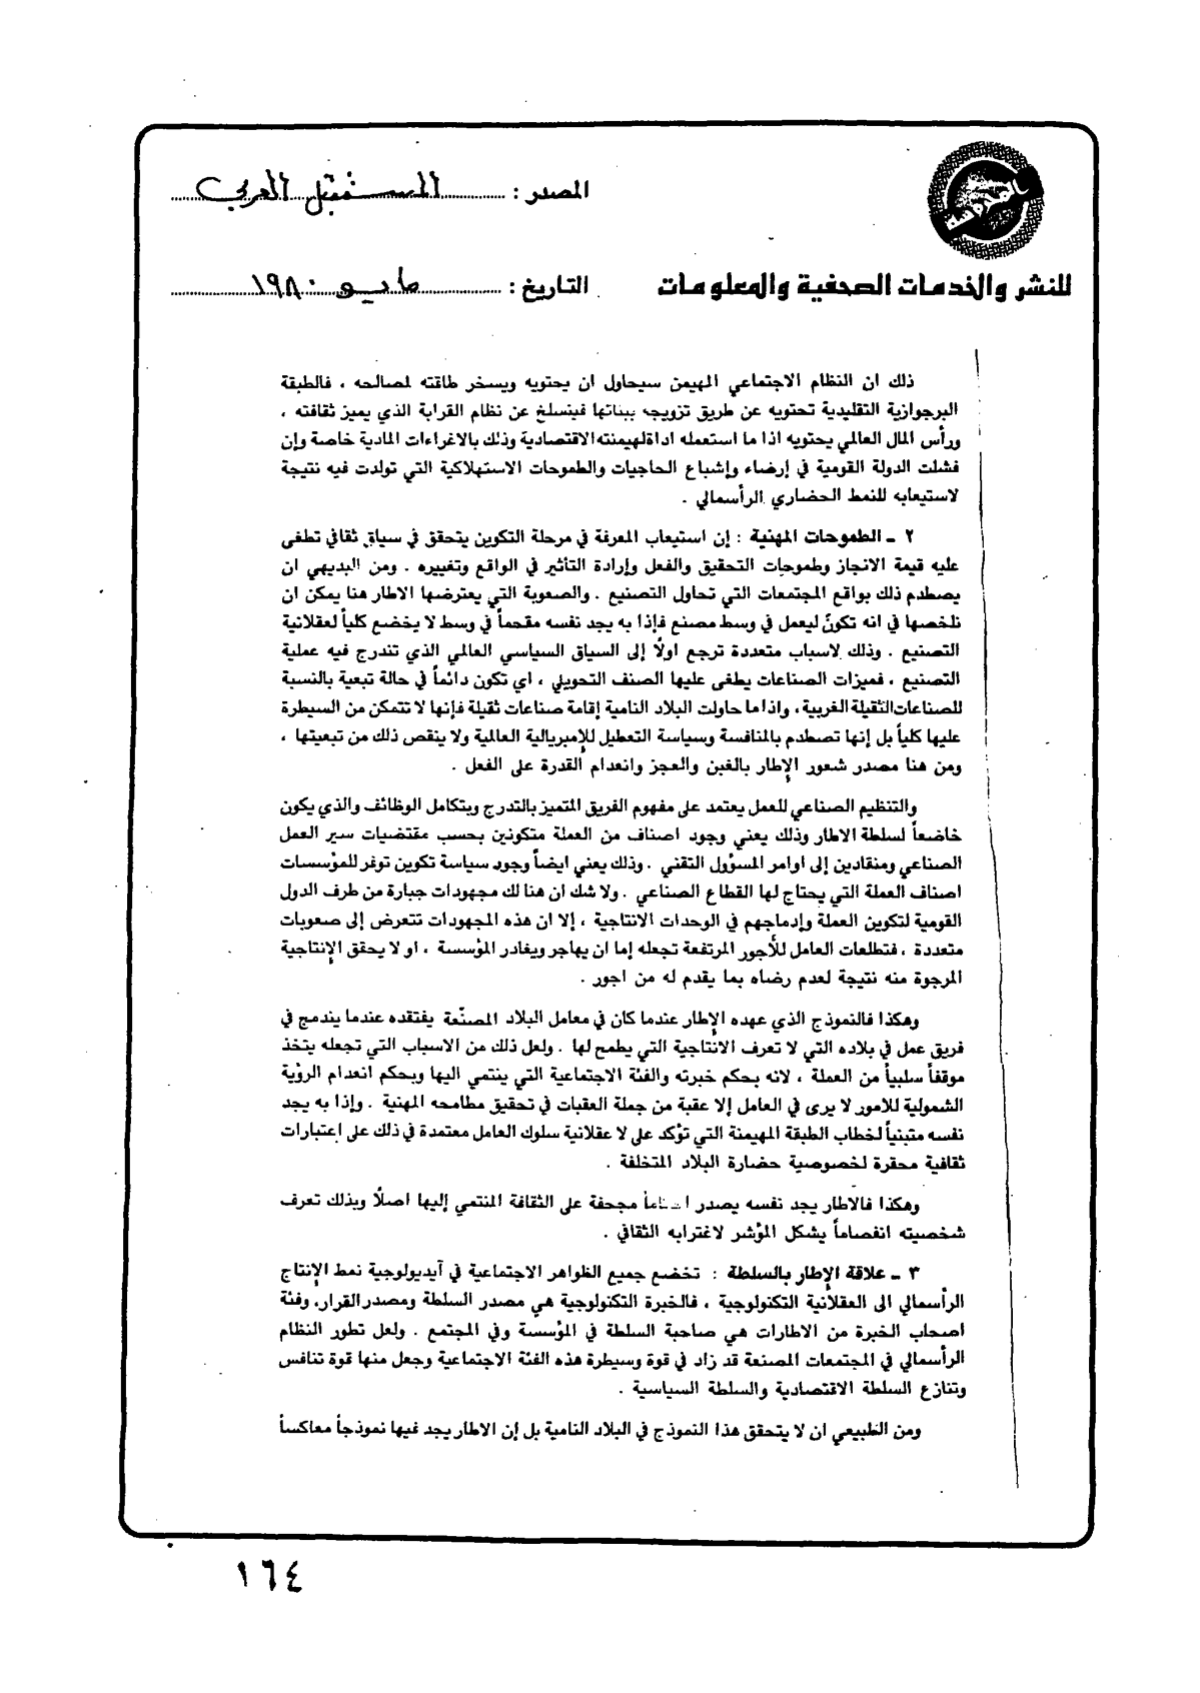 المصدر : المستقبل العربي
للنشر والخدمات الصحفية والمعلومات
التاريخ : مايو ١٩٨٠
ذلك ان النظام الاجتماعي المهيمن سيحاول ان يحتويه ويسخر طاقته لمصالحه ، فالطبقة
البرجوازية التقليدية تحتويه عن طريق تزويجه ببناتها فينسلخ عن نظام القرابة الذي يميز ثقافته ،
ورأس المال العالمي يحتويه اذا ما استعمله اداة لهيمنته الاقتصادية وذلك بالاغراءات المادية خاصة وإن
فشلت الدولة القومية في إرضاء وإشباع الحاجيات والطموحات الاستهلاكية التي تولدت فيه نتيجة
لاستيعابه للنمط الحضاري الرأسمالي .
٢ ــ الطموحات المهنية : إن استيعاب المعرفة في مرحلة التكوين يتحقق في سياق ثقافي تطغى
عليه قيمة الانجاز وطموحات التحقيق والفعل وإرادة التأثير في الواقع وتغييره . ومن البديهي ان
يصطدم ذلك بواقع المجتمعات التي تحاول التصنيع . والصعوبة التي يعترضها الاطار هنا يمكن ان
نلخصها في انه تكونّ ليعمل في وسط مصنع فإذا به يجد نفسه مقحماً في وسط لا يخضع كلياً لعقلانية
التصنيع . وذلك لاسباب متعددة ترجع اولاً إلى السياق السياسي العالمي الذي تندرج فيه عملية
التصنيع ، فميزات الصناعات يطغى عليها الصنف التحويلي ، اي تكون دائماً في حالة تبعية بالنسبة
للصناعات الثقيلة الغربية، واذا ما حاولت البلاد النامية إقامة صناعات ثقيلة فإنها لا تتمكن من السيطرة
عليها كلياً بل إنها تصطدم بالمنافسة وسياسة التعطيل للإمبريالية العالمية ولا ينقص ذلك من تبعيتها ،
ومن هنا مصدر شعور الإطار بالغبن والعجز وانعدام القدرة على الفعل .
والتنظيم الصناعي للعمل يعتمد على مفهوم الفريق المتميز بالتدرج ويتكامل الوظائف والذي يكون
خاضعاً لسلطة الاطار وذلك يعني وجود اصناف من العملة متكونين بحسب مقتضيات سير العمل
الصناعي ومنقادين إلى اوامر المسؤول التقني . وذلك يعني ايضاً وجود سياسة تكوين توفر للمؤسسات
اصناف العملة التي يحتاج لها القطاع الصناعي . ولا شك ان هنا لك مجهودات جبارة من طرف الدول
القومية لتكوين العملة وإدماجهم في الوحدات الانتاجية ، إلا ان هذه المجهودات تتعرض إلى صعوبات
متعددة ، فتطلعات العامل للأجور المرتفعة تجعله إما ان يهاجر ويغادر المؤسسة ، او لا يحقق الإنتاجية
المرجوة منه نتيجة لعدم رضاه بما يقدم له من اجور .
وهكذا فالنموذج الذي عهده الإطار عندما كان في معامل البلاد المصنّعة يفتقده عندما يندمج في
فريق عمل في بلاده التي لا تعرف الانتاجية التي يطمح لها . ولعل ذلك من الاسباب التي تجعله يتخذ
موقفاً سلبياً من العملة ، لانه بحكم خبرته والفئة الاجتماعية التي ينتمي اليها وبحكم انعدام الرؤية
الشمولية للامور لا يرى في العامل إلا عقبة من جملة العقبات في تحقيق مطامحه المهنية . وإذا به يجد
نفسه متبنياً لخطاب الطبقة المهيمنة التي تؤكد على لا عقلانية سلوك العامل معتمدة في ذلك على اعتبارات
ثقافية محقرة لخصوصية حضارة البلاد المتخلفة .
وهكذا فالاطار يجد نفسه يصدر احكاماً مجحفة على الثقافة المنتمي إليها اصلاً وبذلك تعرف
شخصيته انفصاماً يشكل المؤشر لاغترابه الثقافي .
٣ ــ علاقة الإطار بالسلطة : تخضع جميع الظواهر الاجتماعية في آيديولوجية نمط الإنتاج
الرأسمالي الى العقلانية التكنولوجية ، فالخبرة التكنولوجية هي مصدر السلطة ومصدر القرار، وفئة
اصحاب الخبرة من الاطارات هي صاحبة السلطة في المؤسسة وفي المجتمع . ولعل تطور النظام
الرأسمالي في المجتمعات المصنعة قد زاد في قوة وسيطرة هذه الفئة الاجتماعية وجعل منها قوة تنافس
وتنازع السلطة الاقتصادية والسلطة السياسية .
ومن الطبيعي ان لا يتحقق هذا النموذج في البلاد النامية بل إن الاطار يجد فيها نموذجاً معاكساً
١٦٤